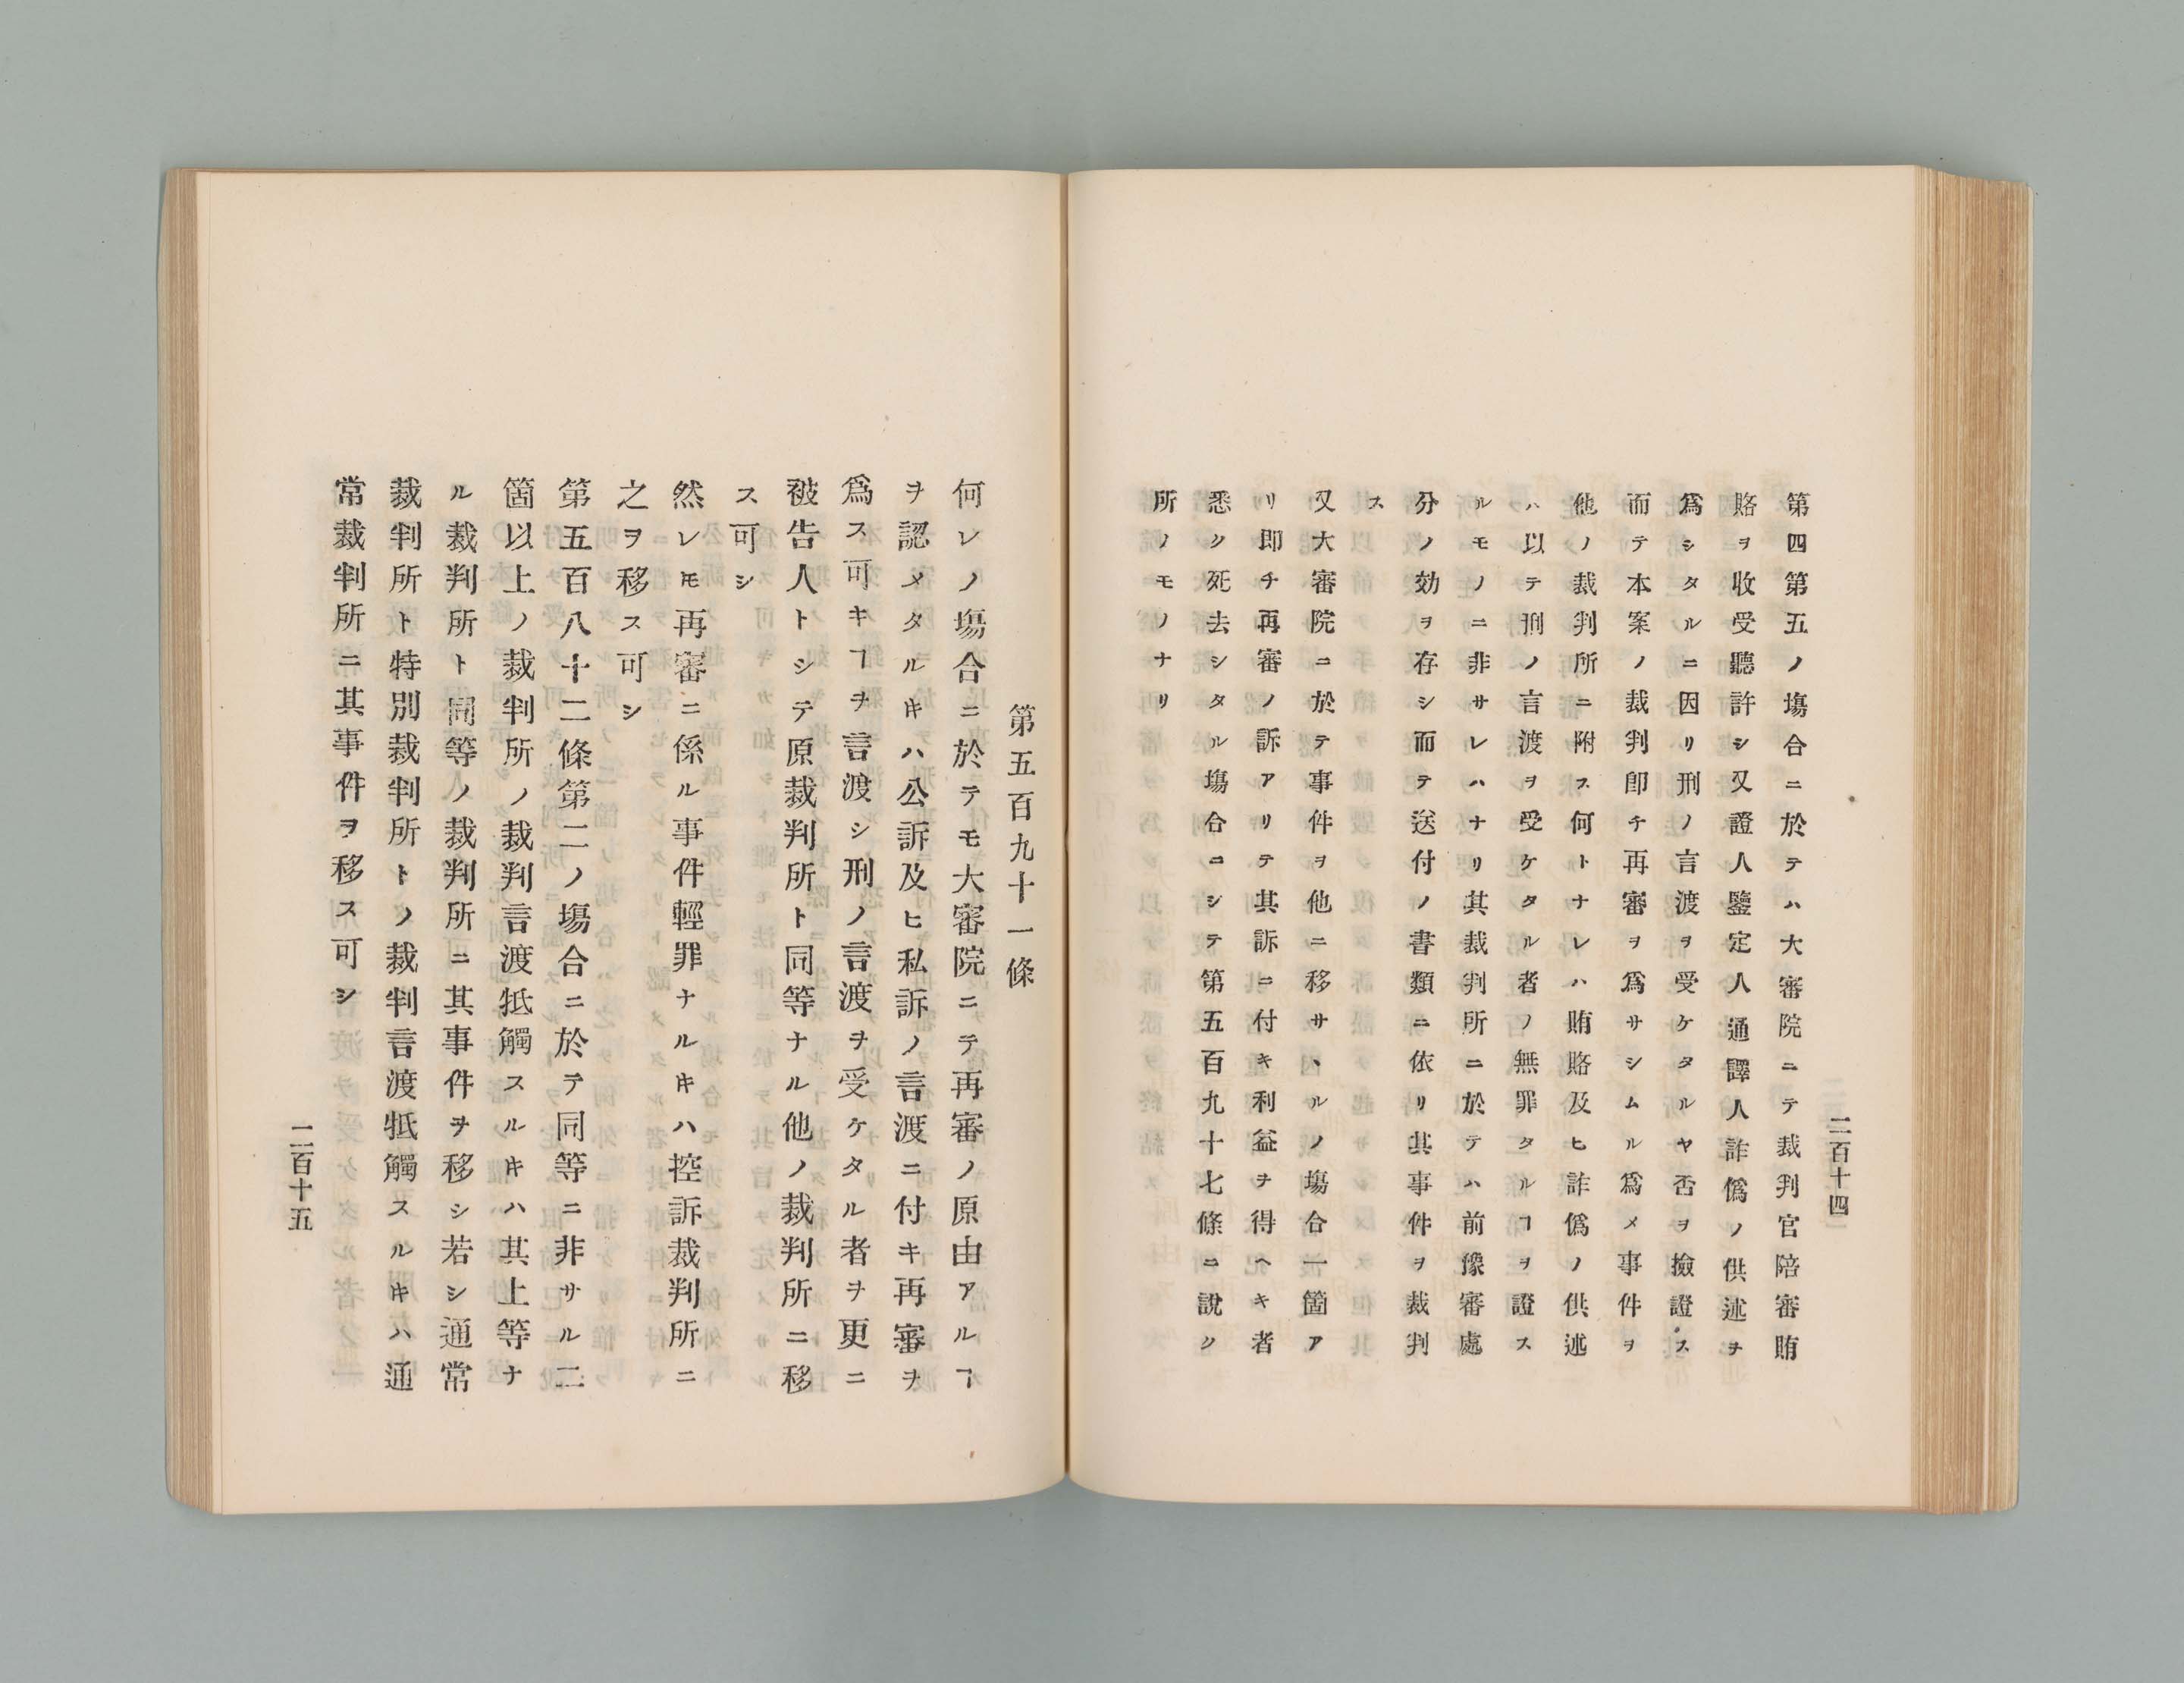 二百十四
第四第五ノ塲合ニ於テハ大審院ニテ裁判官陪審賄
賂ヲ收受聽許シ又證人鑒定人通譯人詐僞ノ供述ヲ
爲シタルニ因リ刑ノ言渡ヲ受ケタルヤ否ヲ撿證ス
而テ本案ノ裁判卽チ再審ヲ爲サシムル爲メ事件ヲ
他ノ裁判所ニ附ス何トナレハ賄賂及ヒ詐僞ノ供述
ハ以テ刑ノ言渡ヲ受ケタル者ノ無罪タルヿヲ證ス
ルモノニ非サレハナリ其裁判所ニ於テハ前豫審處
分ノ効ヲ存シ而テ送付ノ書類ニ依リ其事件ヲ裁判
ス
又大審院ニ於テ事件ヲ他ニ移サヽルノ塲合一箇ア
リ卽チ再審ノ訴アリテ其訴ニ付キ利益ヲ得ヘキ者
悉ク死去シタル塲合ニシテ第五百九十七條ニ說ク
所ノモノナリ
第五百九十一條
何レノ塲合ニ於テモ大審院ニテ再審ノ原由アルヿ
ヲ認メタルキハ公訴及ヒ私訴ノ言渡ニ付キ再審ヲ
爲ス可キヿヲ言渡シ刑ノ言渡ヲ受ケタル者ヲ更ニ
被告人トシテ原裁判所ト同等ナル他ノ裁判所ニ移
ス可シ
然レ𪜈再審ニ係ル事件輕罪ナルキハ控訴裁判所ニ
之ヲ移ス可シ
第五百八十二條第二ノ塲合ニ於テ同等ニ非サル二
箇以上ノ裁判所ノ裁判言渡牴觸スルキハ其上等ナ
ル裁判所ト同等ノ裁判所ニ其事件ヲ移シ若シ通常
裁判所ト特別裁判所トノ裁判言渡牴觸スルキハ通
常裁判所ニ其事件ヲ移ス可シ
二百十五